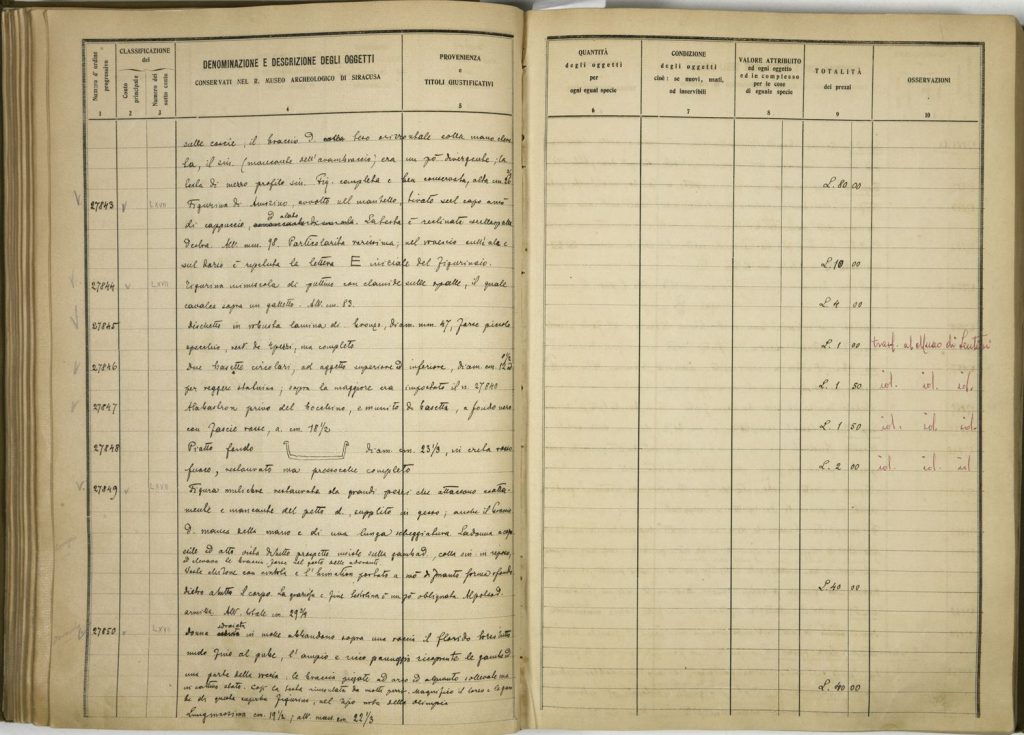 Numero d'ordine progressivo
CLASSIFICAZIONE del
Conto principale
Numero del sotto conto
DENOMINAZIONE E DESCRIZIONE DEGLI OGGETTI
CONSERVATI NEL R. MUSEO ARCHEOLOGICO DI SIRACUSA
PROVENIENZA
e
TITOLI GIUSTIFICATIVI
1 2 3 4 5
sulle coscie, il braccio d. teso orizzontale colla mano
la, il sin. (mancante dell'avambraccio) era un pò divergente; la
testa di mezzo profilo sin. Fig. completa e ben conservata, alta cm.
27843 v LXVII Figurina di Amorino, avvolto nel mantello, tirato sul capo a mò
di cappuccio, ed alato. La testa è reclinata sulla spalla
destra. Alt. mm. 98. Particolarità rarissima; nel rovescio sull'ala e
sul dorso è ripetuta la lettera E iniziale del figurinaio.
27844 v LXVII Figurina minuscola di puttino con clamide sulle spalle, il quale
cavalca sopra un galletto. Alt. mm. 83.
27845 Dischetto in robusta lamina di bronzo, diam. mm. 47, forse piccolo
specchio, rest. da pezzi, ma completo
27846 Due basette circolari, ad aggetto superiore ed inferiore, diam. cm. 12
per reggere statuine; sopra la maggiore era impostato il n. 27840
27847 Alabastron privo del bocchino, e munito di basetta, a fondo nero
con fascie rosse, a. cm. 18 1/2
27848 Piatto fondo diam. cm. 23 1/3, in creta rosso
fuoco, restaurato ma pressochè completo
27849 v LXVII Figura muliebre restaurata da grandi pezzi che attaccano esatta-
mente e mancante del petto d. supplito in gesso; anche il braccio
d. manca della mano e di una lunga scheggiatura. La donna
ed alto vista di tutto prospetto insiste sulla gamba d., colla sin. in riposo,
ed elevava le braccia forse nel gesto delle adoranti
Veste chitone con cintola e l'himation portato a mò di manto forma sfondo
dietro a tutto il corpo. La graziosa e fine testolina è un pò obliquata. Al polso d.
armilla. Alt. totale cm. 29 3/4
27850 v LXVII Donna sdraiata in molle abbandono sopra una roccia il florido torso tutto
nudo fino al pube, l'ampio e ricco panneggio ricoprente le gambe ed
una parte della roccia; le braccia piegate ad arco ed alquanto sollevate
Così la testa rimontata da molti pezzi. Magnifico il torso e le gambe
di questa superba figurina, nel tipo noto della olimpia
Lungh. massima cm. 19 1/2; alt. mass. cm. 22 1/3
QUANTITÀ
degli oggetti
per
ogni egual specie
CONDIZIONE
degli oggetti
cioè: se nuovi, usati,
od inservibili
VALORE ATTRIBUITO
ad ogni oggetto
ed in complesso
per le cose
di eguale specie
TOTALITÀ
dei prezzi
OSSERVAZIONI
6 7 8 9 10
L. 80 00
L. 10 00
L. 4 00
L. 1 00 trasf. al Museo di Lentini
L. 1 50 id. id. id.
L. 1 50 id. id. id.
L. 2 00 id. id. id
L. 40 00
L. 40 00